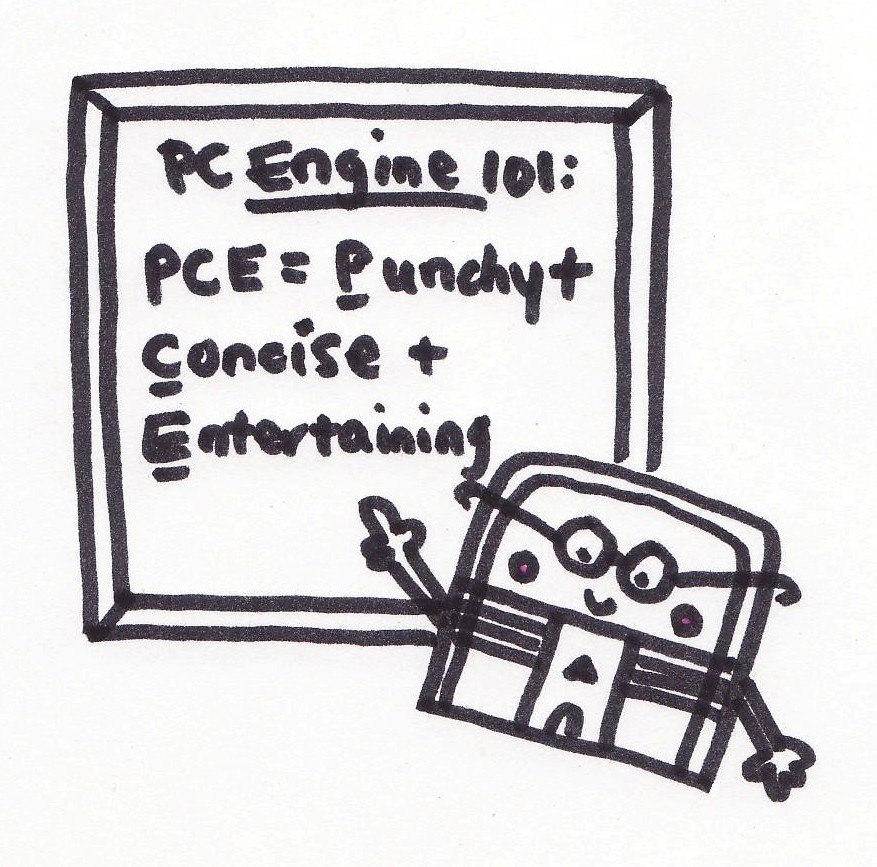 PC Engine 101:
PCE = Punchy +
Concise +
Entertaining